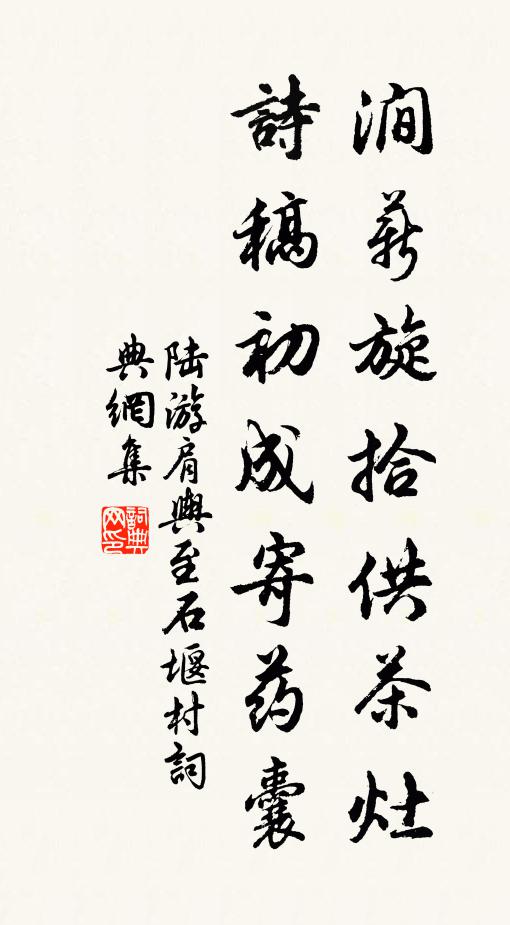 澗薪旋拾供茶灶
詩稿初成寄药囊
陆游肩輿至石堰村詞
典網集
詞典網印